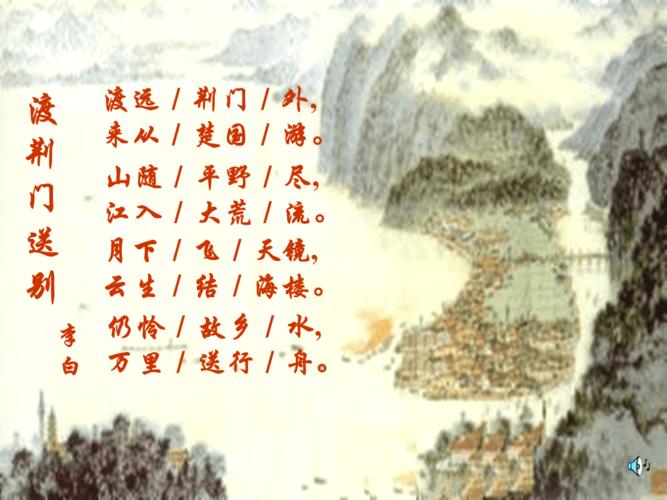 渡荆门送别
李白
渡远/荆门/外，
来从/楚国/游。
山随/平野/尽，
江入/大荒/流。
月下/飞/天镜，
云生/结/海楼。
仍怜/故乡/水，
万里/送行/舟。